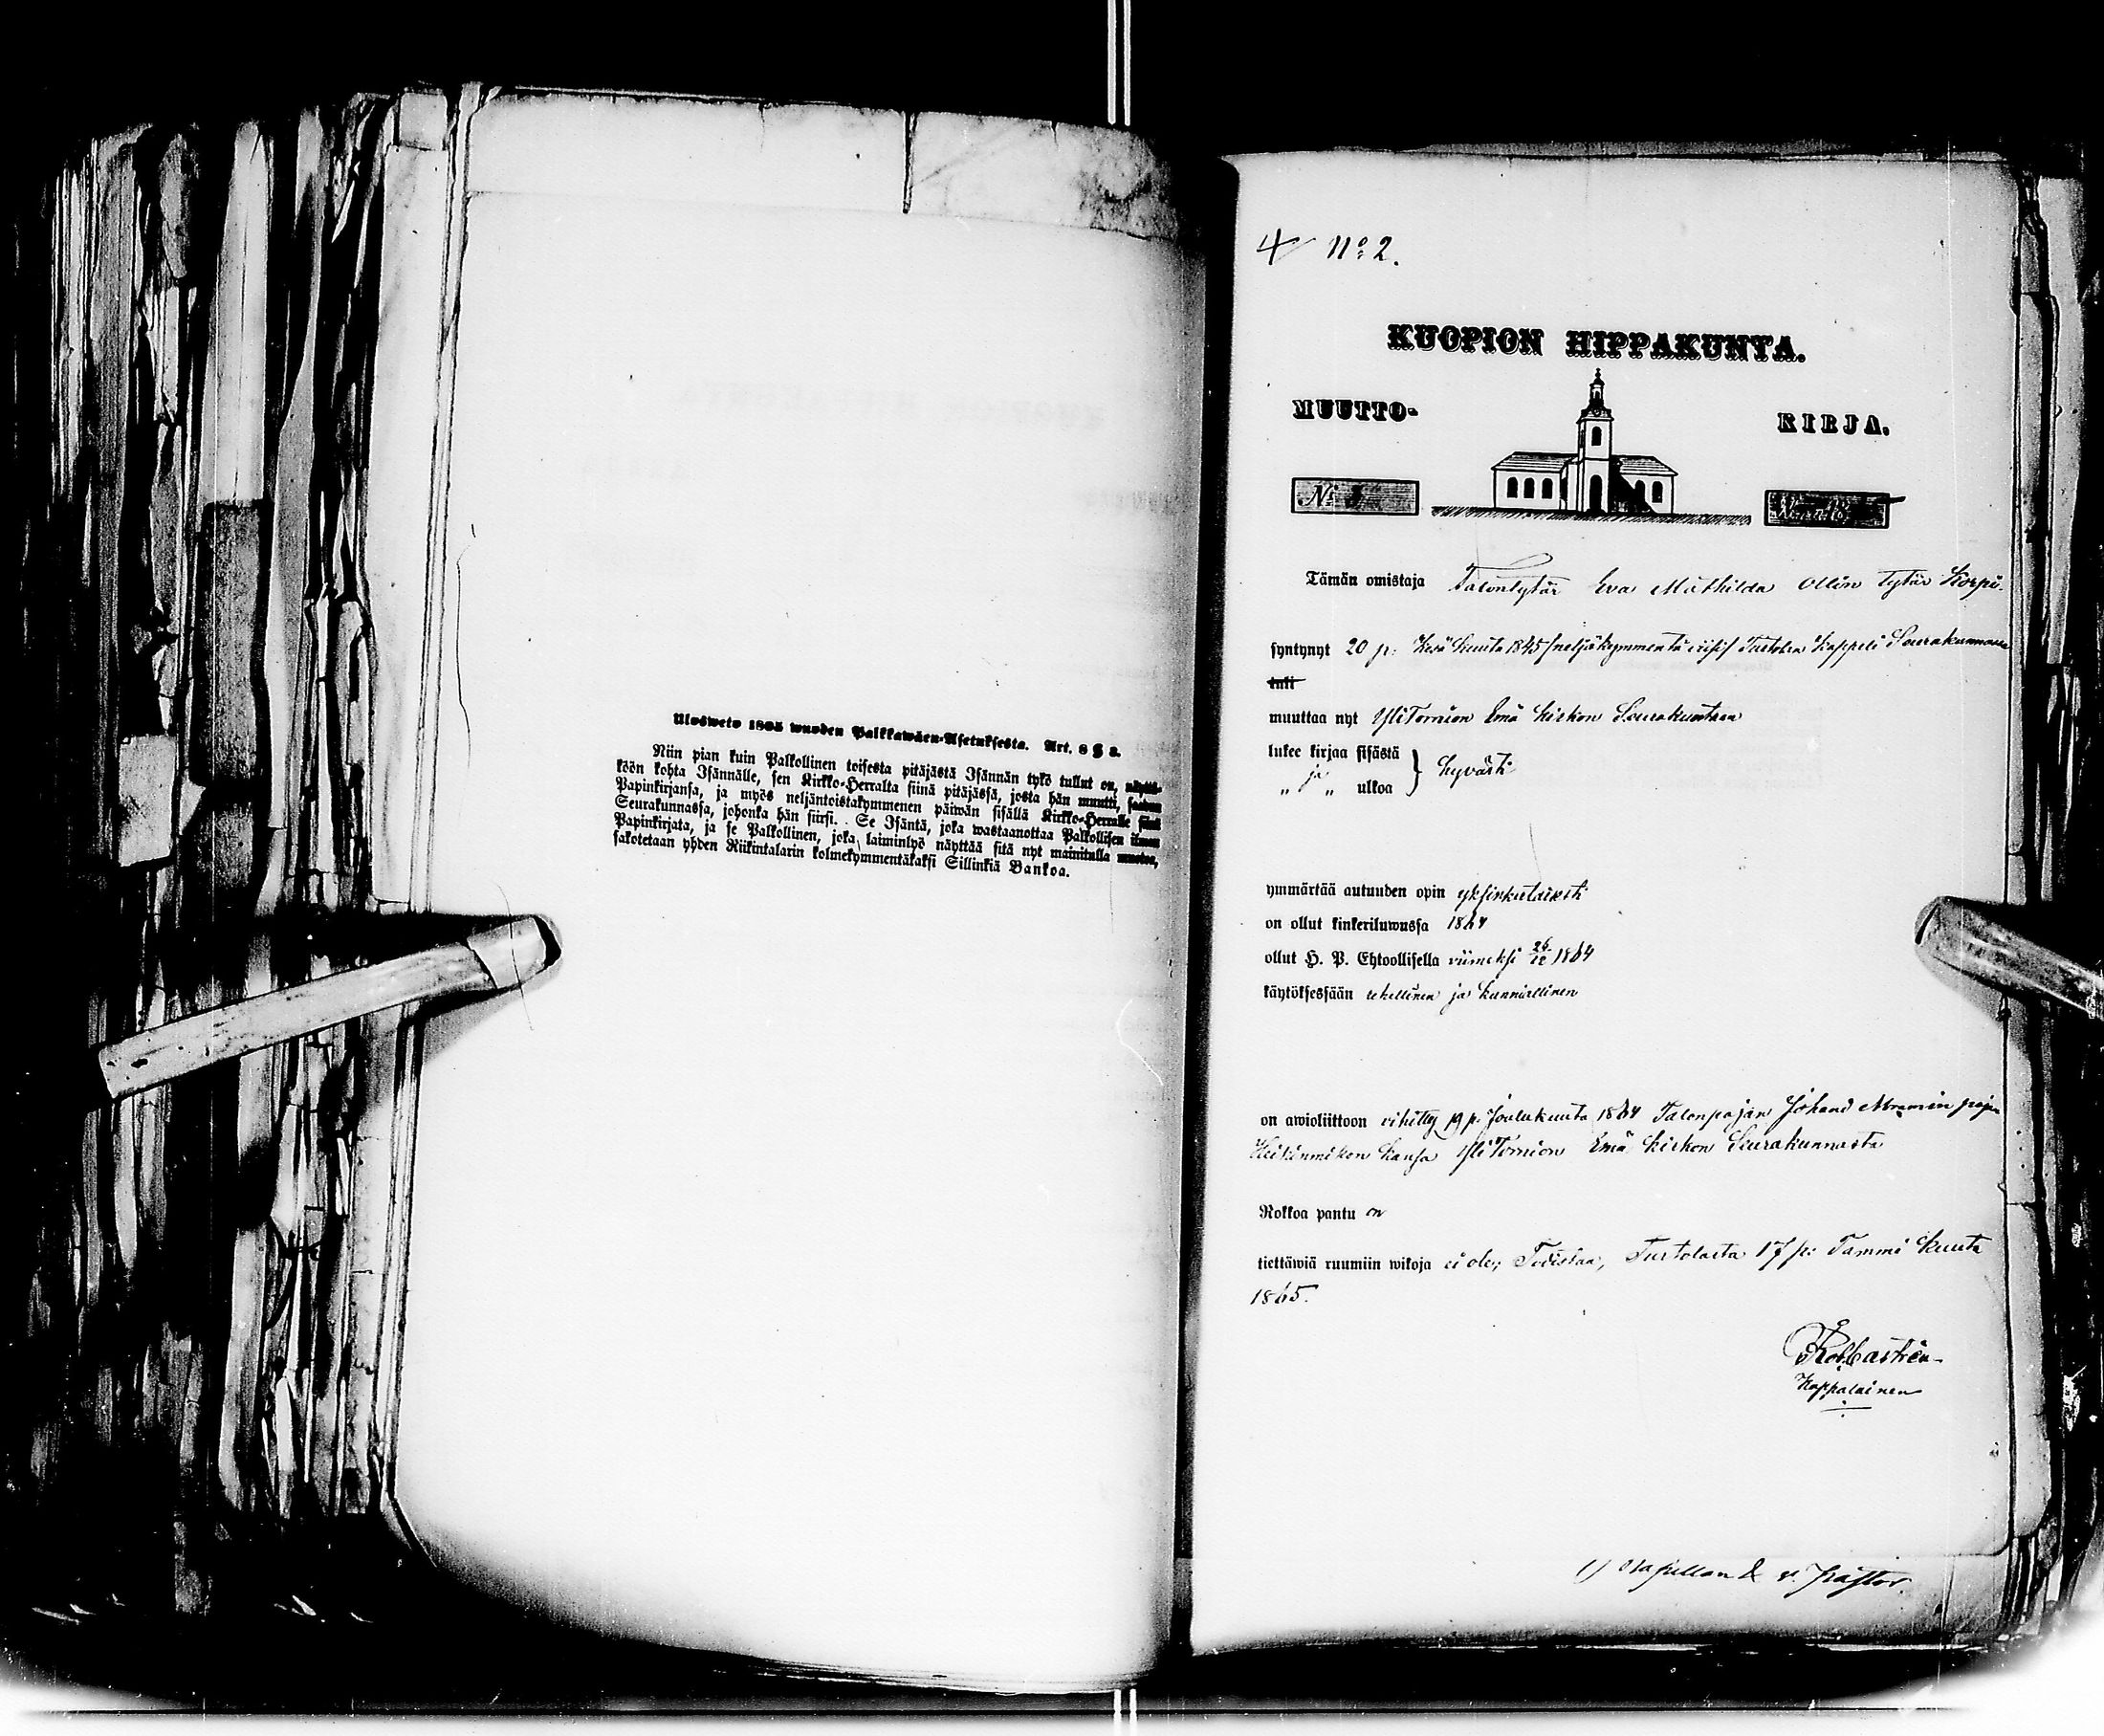 Ulosweto 1805 wuoden Palkkawäen-Asetuksesta. Art. 8 § 3.
Niin pian kuin Palkollinen toisesta pitäjästä Isännän tykö tullut on, näyttä-
köön kohta Isännälle, sen Kirkko-Herralta siinä pitäjässä, josta hän muutti, saadun
Papinkirjansa, ja myös neljäntoistakymmenen päiwän sisällä Kirkko-Herralle siinä
Seurakunnassa, johonka hän siirsi. Se Isäntä, joka wastaanottaa Palkollisen ilman
Papinkirjata, ja se Palkollinen, joka laiminlyö näyttää sitä nyt mainitulla muotoa,
sakotetaan yhden Riikintalarin kolmekymmentäkaksi Sillinkiä Bankoa.
4 No 2.
KUOPION HIPPAKUNTA.
MUUTTO- KIRJA.
No
Tämän omistaja Talontytär Eva Mathilda Ollin tytär Korpi.
syntynyt 20 p: Kesä kuuta 1845 /neljäkymmentä viisi/ Turtolan Kappeli Seurakunnassa
tuli
muuttaa nyt YliTornion Emä kirkon Seurakuntaan
lukee kirjaa sisästä } hyvästi
„ ja „ ulkoa
ymmärtää autuuden opin yksinkertaisesti
on ollut kinkeriluwussa 1864
ollut H. P. Ehtoollisella viimeksi 26/12 1864
käytöksessään rehellinen ja kunniallinen
on awioliittoon vihitty 19 p. Joulukuuta 1864 Talonpojan Johand Abramin pojan
Heikinmikon kansa YliTornion Emä kirkon Seurakunnasta
Rokkoa pantu on
tiettäwiä ruumiin wikoja ei ole; Todistaa, Turtolasta 17 p: Tammi kuuta
1865.
Rob. Castrén
Kappalainen
v. Pastor.